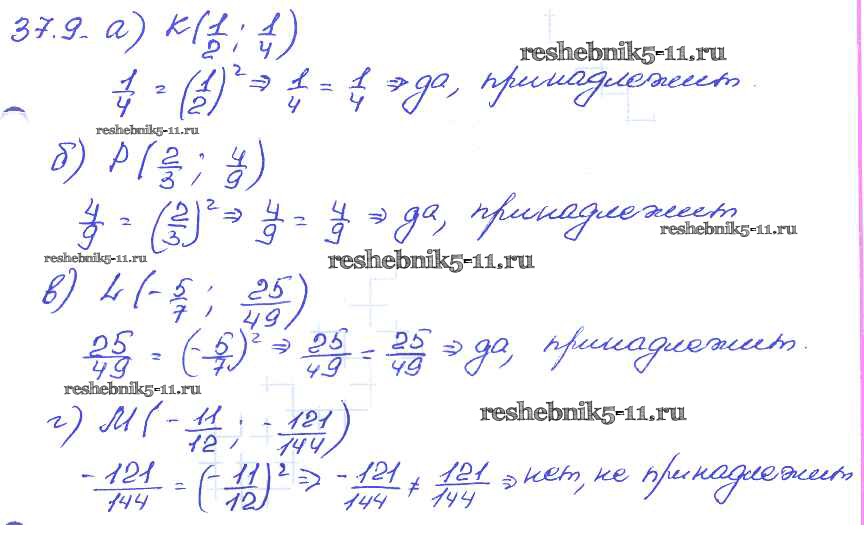 37.9. а) K(1/2; 1/4)
reshebnik5-11.ru
1/4 = (1/2)² ⇒ 1/4 = 1/4 ⇒ да, принадлежит.
reshebnik5-11.ru
б) P(2/3; 4/9)
4/9 = (2/3)² ⇒ 4/9 = 4/9 ⇒ да, принадлежит
reshebnik5-11.ru
reshebnik5-11.ru
reshebnik5-11.ru
в) L(-5/7; 25/49)
25/49 = (-5/7)² ⇒ 25/49 = 25/49 ⇒ да, принадлежит.
reshebnik5-11.ru
reshebnik5-11.ru
г) M(-11/12; -121/144)
-121/144 = (-11/12)² ⇒ -121/144 ≠ 121/144 ⇒ нет, не принадлежит